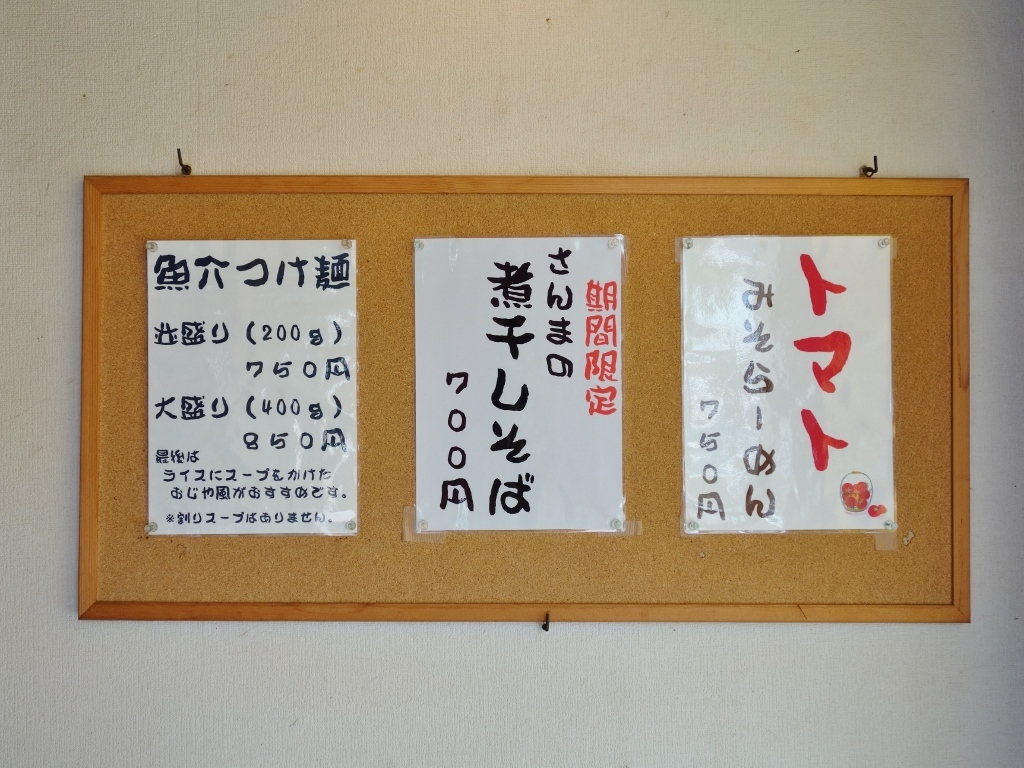 魚介つけ麺
並盛り(200g)
750円
大盛り(400g)
850円
最後は
ライスにスープをかけた
おじや風がおすすめです。
※割りスープはありません。
期間限定
さんまの
煮干しそば
700円
トマト
みそらーめん
750円